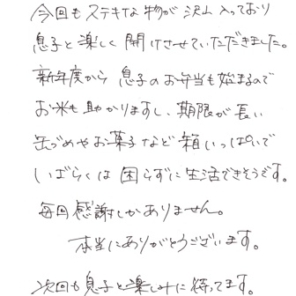 今回もステキな物が沢山入っており
息子と楽しく開けさせていただきました。
新年度から息子のお弁当も始まるので
お米も助かりますし、期限が長い
缶づめやお菓子など箱いっぱいで
しばらくは困らずに生活できそうです。
毎回感謝しかありません。
本当にありがとうございます。
次回も息子と楽しみに待ってます。